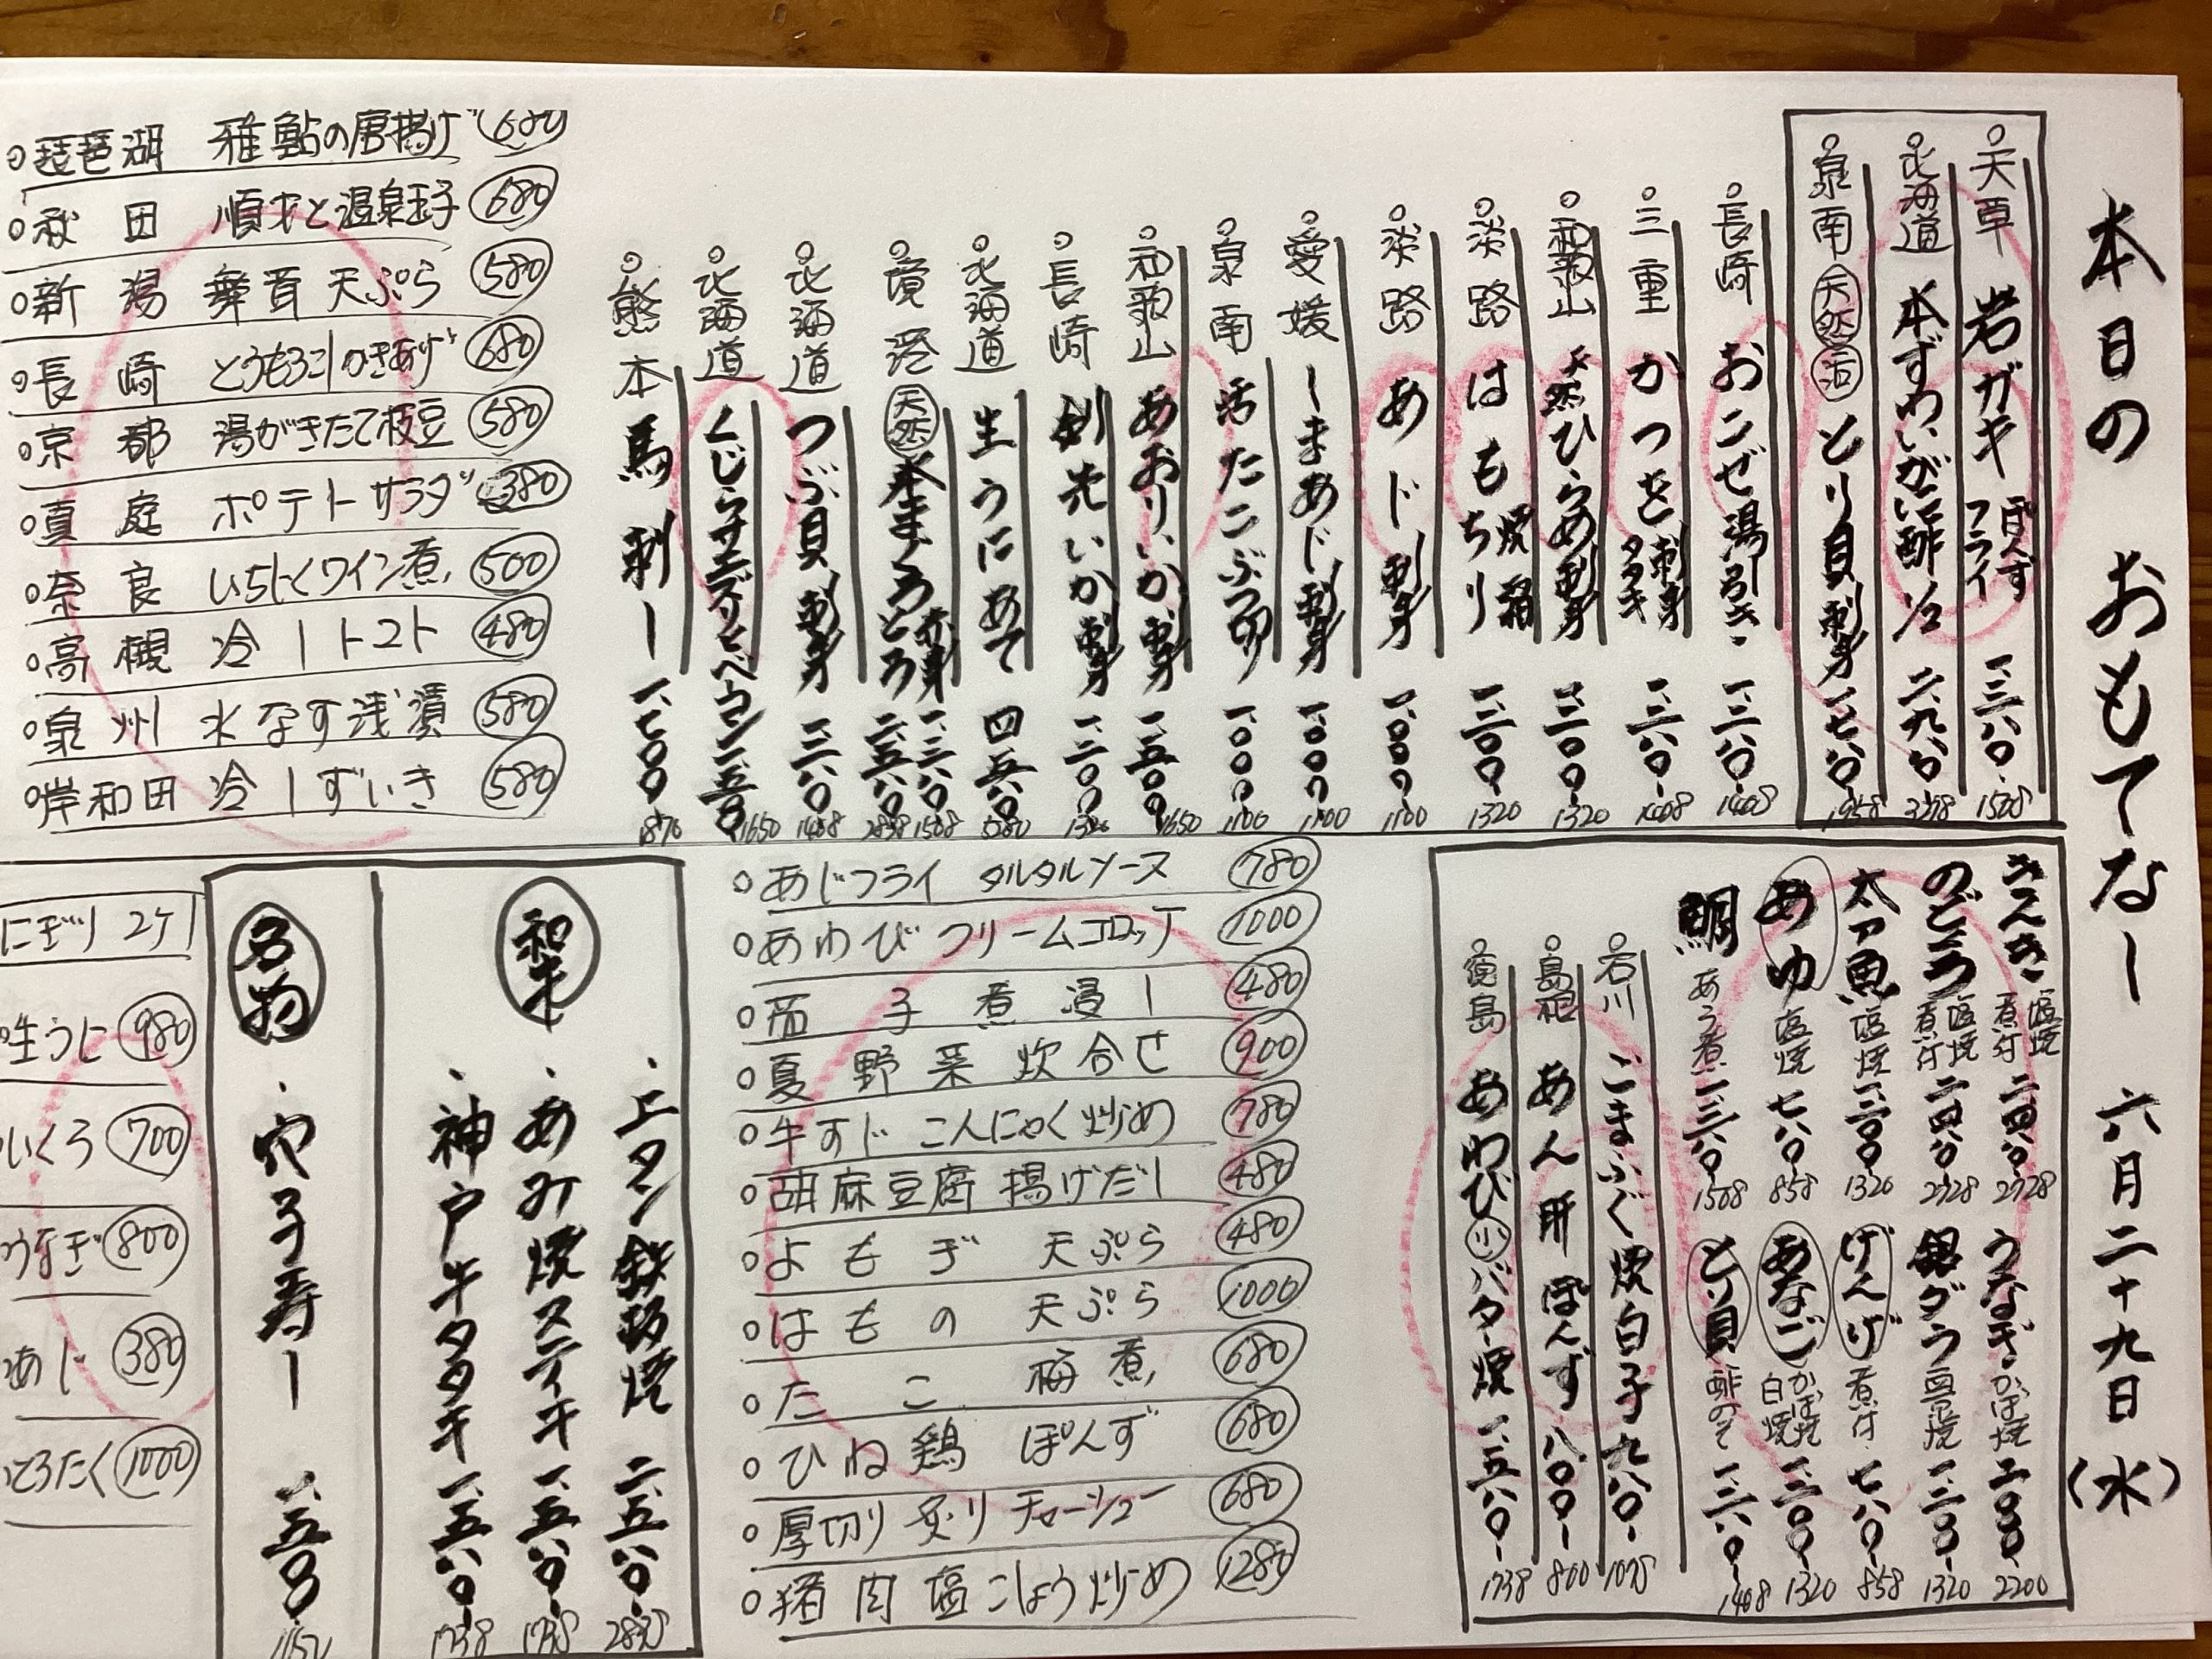 本日の おもてなし 六月二十九日(水)
天草 岩ガキ ぽんず フライ 一、三八〇- 1508
北海道 本ずわいがに酢 1/2 二、九八〇- 3278
泉南 天然 活 とり貝刺身 一、七八〇- 1958
長崎 おこぜ湯引き 一、二八〇- 1408
三重 かつを 刺身 タタキ 一、二八〇- 1408
和歌山 天然ひらめ刺身 一、二〇〇- 1320
淡路 はも 焼霜 ちり 一、二〇〇- 1320
淡路 あじ刺身 一、〇〇〇- 1100
愛媛 しまあじ刺身 一、〇〇〇- 1100
泉南 活たこぶつ切り 一、〇〇〇- 1100
和歌山 あおりいか刺身 一、五〇〇 1650
長崎 剣先いか刺身 一、二〇〇- 1320
北海道 生うにあて 四、五八〇
境港 天然 本まぐろ 赤身 とろ 一、三八〇- 二、五八〇- 1508
北海道 つぶ貝刺身 一、二八〇- 1408
北海道 くじらサエズリとベーコン 一、五〇〇 1650
熊本 馬刺し 一、七〇〇- 1870
琵琶湖 稚鮎の唐揚げ 680
秋田 順才と温泉玉子 680
新潟 舞茸天ぷら 580
長崎 とうもろこしかきあげ 680
京都 湯がきたて枝豆 580
真庭 ポテトサラダ 380
奈良 いちじくワイン煮 500
高槻 冷しトマト 480
泉州 水なす浅漬 580
岸和田 冷しずいき 580
きんき 塩焼 煮付 二、四八〇- 2728
のどぐろ 塩焼 煮付 二、四八〇- 2728
太刀魚 塩焼 一、二〇〇- 1320
あゆ 塩焼 七八〇- 858
鯛 あら煮 一、三八〇- 1508
うなぎ かば焼 二、〇〇〇- 2200
銀ダラ 西京焼 一、二〇〇- 1320
げんげ 煮付 七八〇- 858
あなご かば焼 白焼 一、二〇〇- 1320
とり貝 酢のもの 一、二八〇- 1408
石川 ごまふぐ焼白子 九八〇- 1078
島根 あん肝ぽんず 八〇〇- 800
徳島 あわび小バター焼 一、五八〇- 1738
あじフライ タルタルソース 780
あわびクリームコロッケ 1000
茄子煮浸し 480
夏野菜炊合せ 900
牛すじこんにゃく炒め 780
胡麻豆腐揚げだし 480
よもぎ天ぷら 480
はもの天ぷら 1000
たこ梅煮 680
ひね鶏ぽんず 680
厚切り炙りチャーシュー 680
猪肉塩こしょう炒め 1280
和牛
・上タン鉄板焼 二、五八〇- 2838
・あみ焼ステーキ 一、五八〇- 1738
・神戸牛タタキ 一、五八〇- 1738
名物
・穴子寿し 一、五〇〇-
にぎり 2ケ
生うに 980
いくら 700
うなぎ 800
あじ 380
とろたく 1000